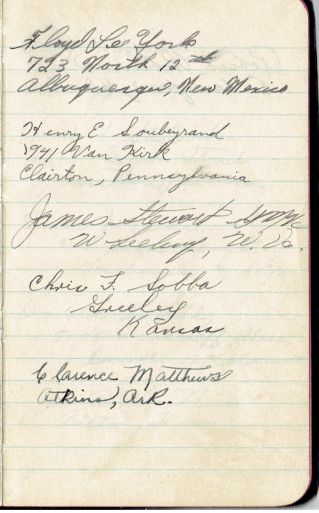 Floyd Lee York
723 North 12th
Albuquerque, New Mexico
Henry E Soubeyrand
941 Van Kirk
Clairton, Pennsylvania
James Stewart
Wheeling, W. Va.
Chris F. Sobba
Greeley
Kansas
Clarence Matthews
Atkins, Ark.